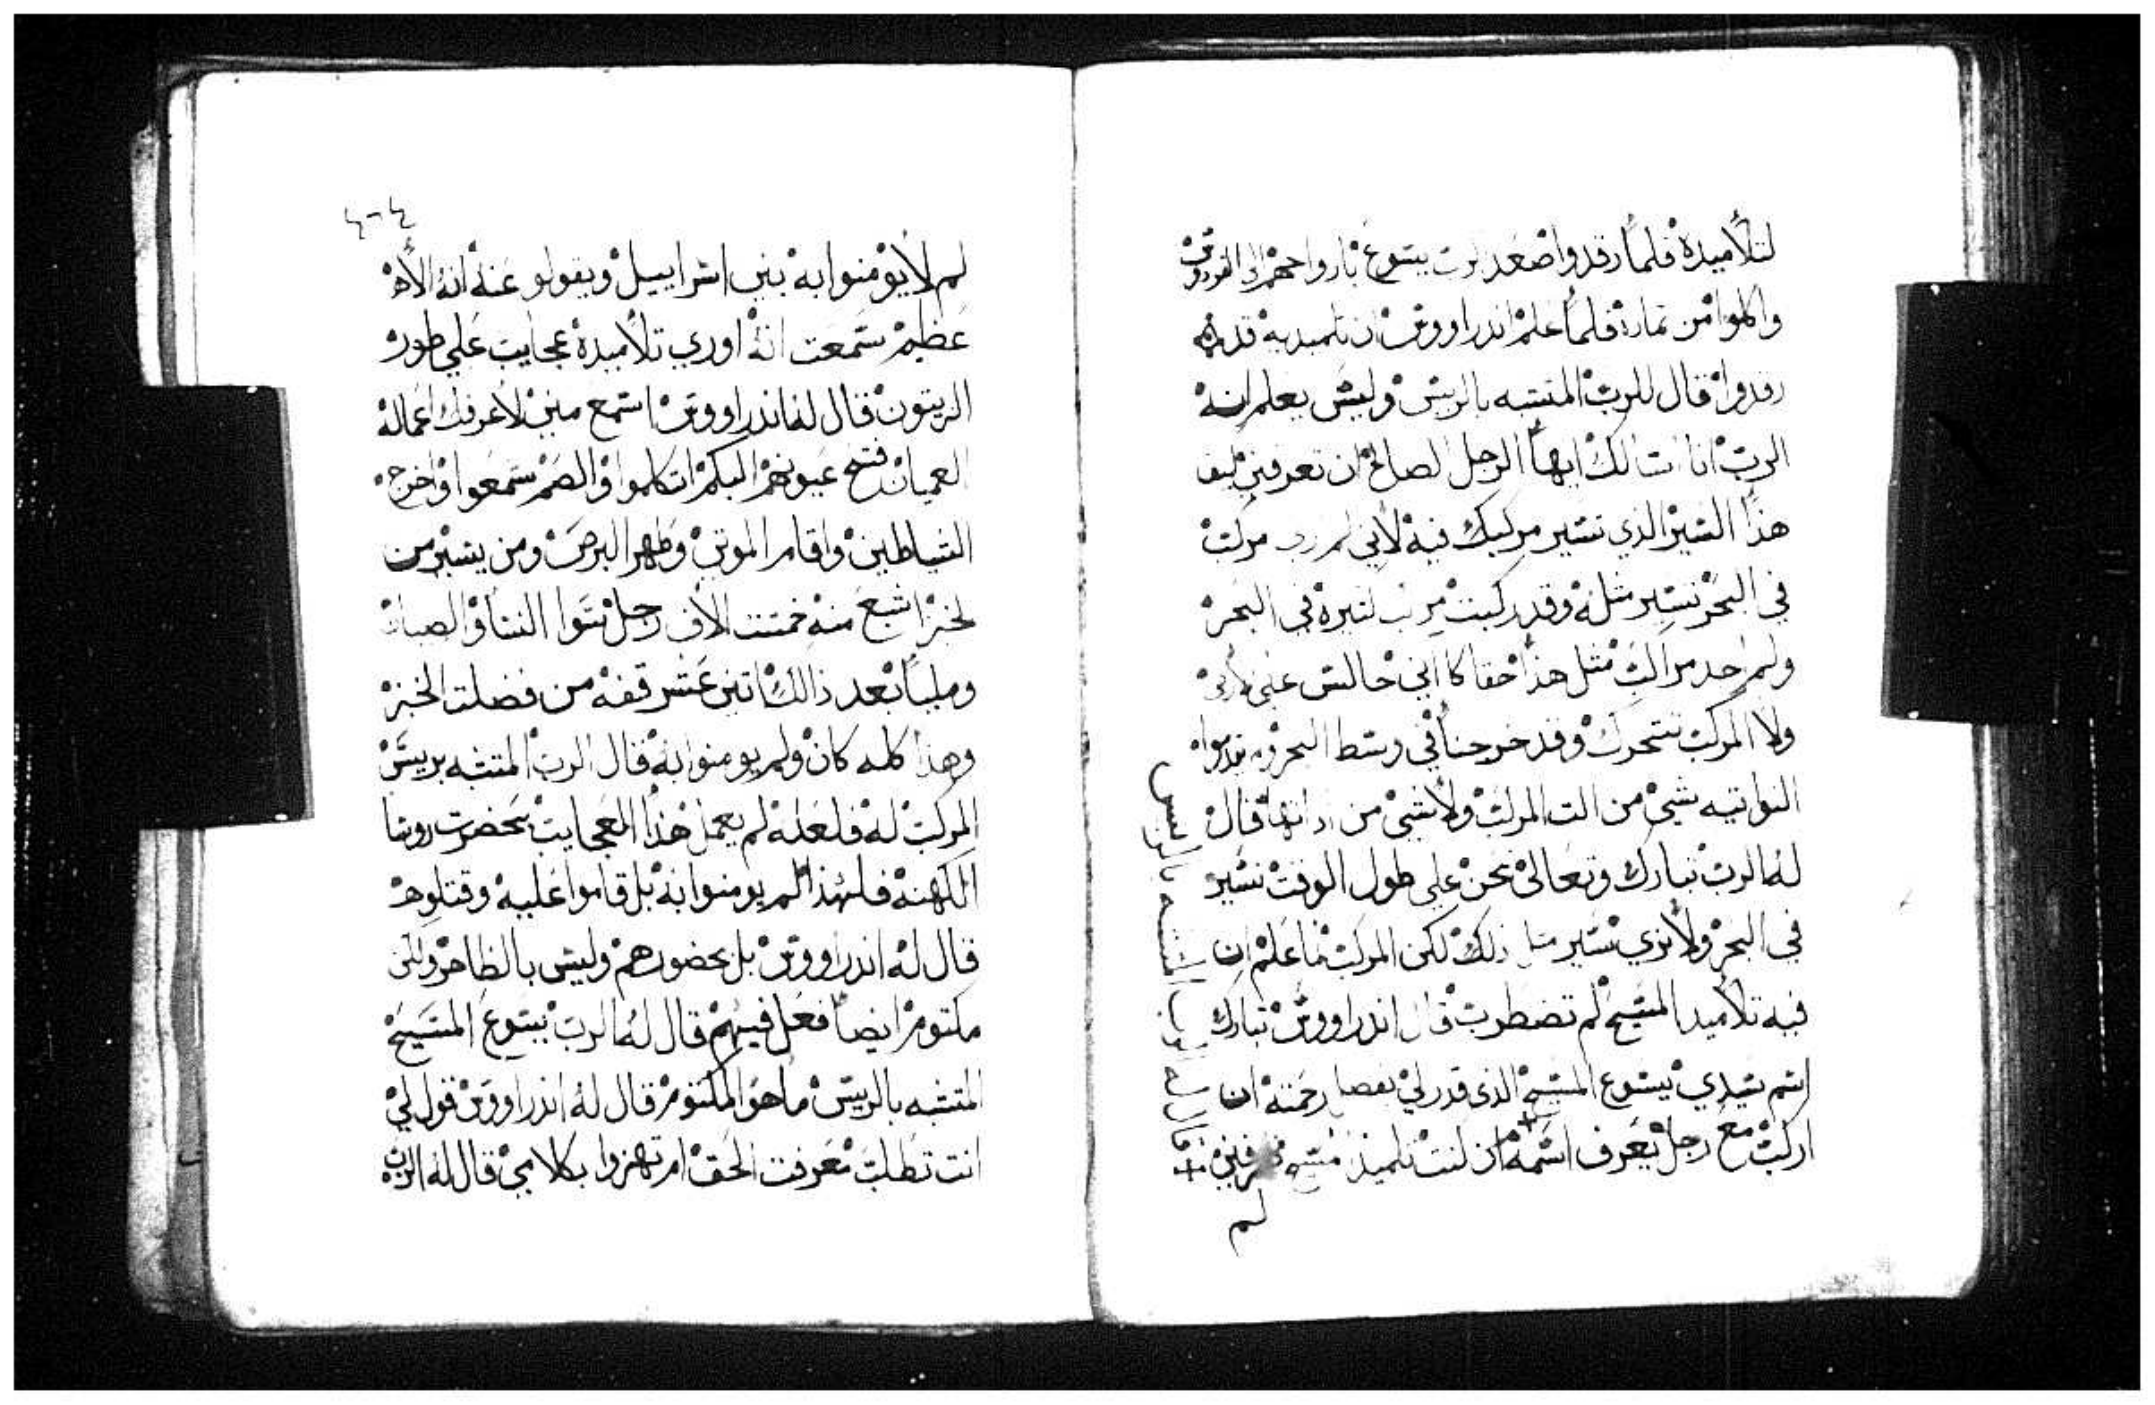 لتلاميذه فلما رقدوا صعد الرب يسوع بارواحهم الى الفردوس
واكلوا من ثماره فلما علم اندراووس ان تلميديه قد
رقدوا قال للرب المتشبه بالريس وليس يعلم انه
الرب انا اسالك ايها الرجل الصالح ان تعرفني كيف
هذا السير الذي تسير مركبك فيه لاني لم مركب
في البحر تسير مثله وقد ركبت كتيره في البحر
ولم اجد مراكب مثل هذا حقا كاني جالس علي
ولا المركب تتحرك وقد خرجنا في وسط البحر
النواتيه بشي من الت المركب ولا شي من قال
له الرب تبارك وتعالى نحن علي طول الوقت نسير
في البحر ولا نري سير مثل ذلك لكن المركب لما علم ان
فيه تلاميد المسيح لم تضطرب قال اندراووس تبارك
اسم سيدي يسوع المسيح الذي قدر لي رحمته ان
اركب مع رجل يعرف اسمه ان كنت تلميذ
قال له الرب يسوع المتشبه بالريس
لم
٤٠٤
لم لا يومنوا به بني اسراييل ويقولو عنه انه الاه
عظيم سمعت انه اوري تلاميده عجايب علي طور
الزيتون قال له اندراووس اسمع مني لاعرفك اعماله
العميان فتح عيونهم البكم اتكلموا والصم سمعوا واخرج
الشياطين واقام الموتي وطهر البرص ومن يسير من
لخبز اشبع منه خمست الاف رجل سوا النسا والصبيان
ومليا بعد ذالك اتني عشر قفه من فضلت الخبز
وهذا كله كان ولم يومنوا به قال الرب المتشبه بريس
المركب له فلعله لم يعمل هذا العجايب بحضرت روسا
الكهنه فلهذا لم يومنوا به بل قاموا عليه وقتلوه
قال له اندراووس بل بحضورهم وليس بالظاهر ولكن
مكتوم ايضا فعل فيهم قال له الرب يسوع المسيح
المتشبه بالريس ما هو المكتوم قال له اندراووس قول لي
انت تطلب معرفت الحق ام تهزوا بكلامي قال له الرب